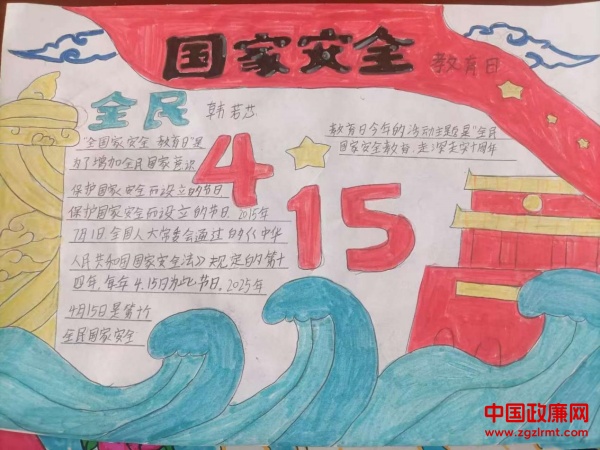 国家安全
教育日
全民
韩若芯
"全国家安全 教育日"是
为了增加全民国家意识
保护国家安全而设立的节日
保护国家安全而设立的节日. 2015年
7月1日全国人大常委会通过的《中华
人民共和国国家安全法》规定的第十
四年,每年4.15日为此节日. 2025年
4月15日是第十
全民国家安全
4 15
教育日今年的活动主题是"全民
国家安全教育,走深走实十周年
中国政廉网
www.zgzlrmt.com